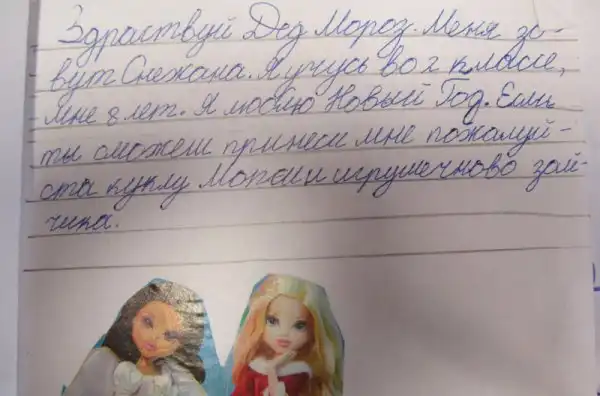 Здраствуй Дед Мороз. Меня зо-
вут Снежана. Я учусь во 2 класе,
мне 8 лет. Я люблю Новый Год. Если
ты сможеш принеси мне пожалуй-
ста куклу Мокси и игрушечново зай-
чика.